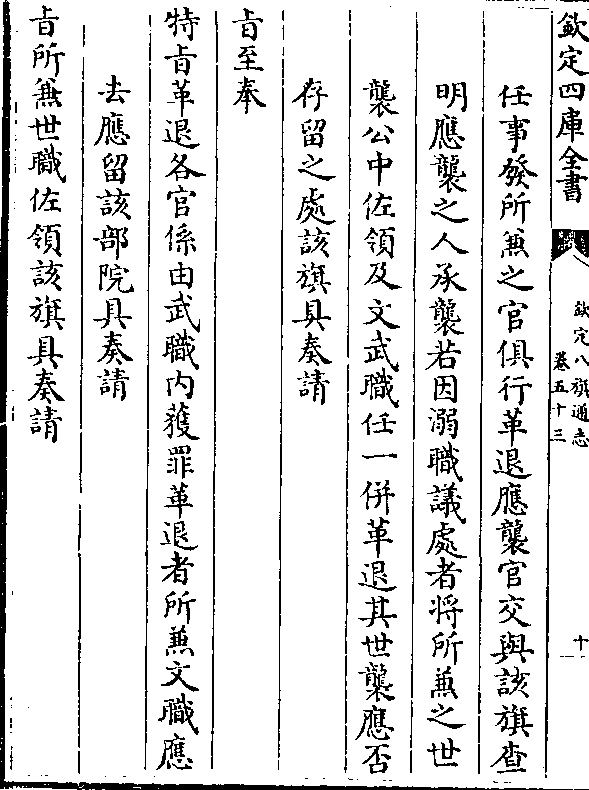 欽定四庫全書
欽定八旗通志
卷五十三
十
任事發所兼之官俱行革退應襲官交與該旗查
明應襲之人承襲若因溺職議處者將所兼之世
襲公中佐領及文武職任一併革退其世襲應否
存留之處該旗具奏請
旨至奉
特旨革退各官係由武職內獲罪革退者所兼文職應
去應留該部院具奏請
旨所兼世職佐領該旗具奏請